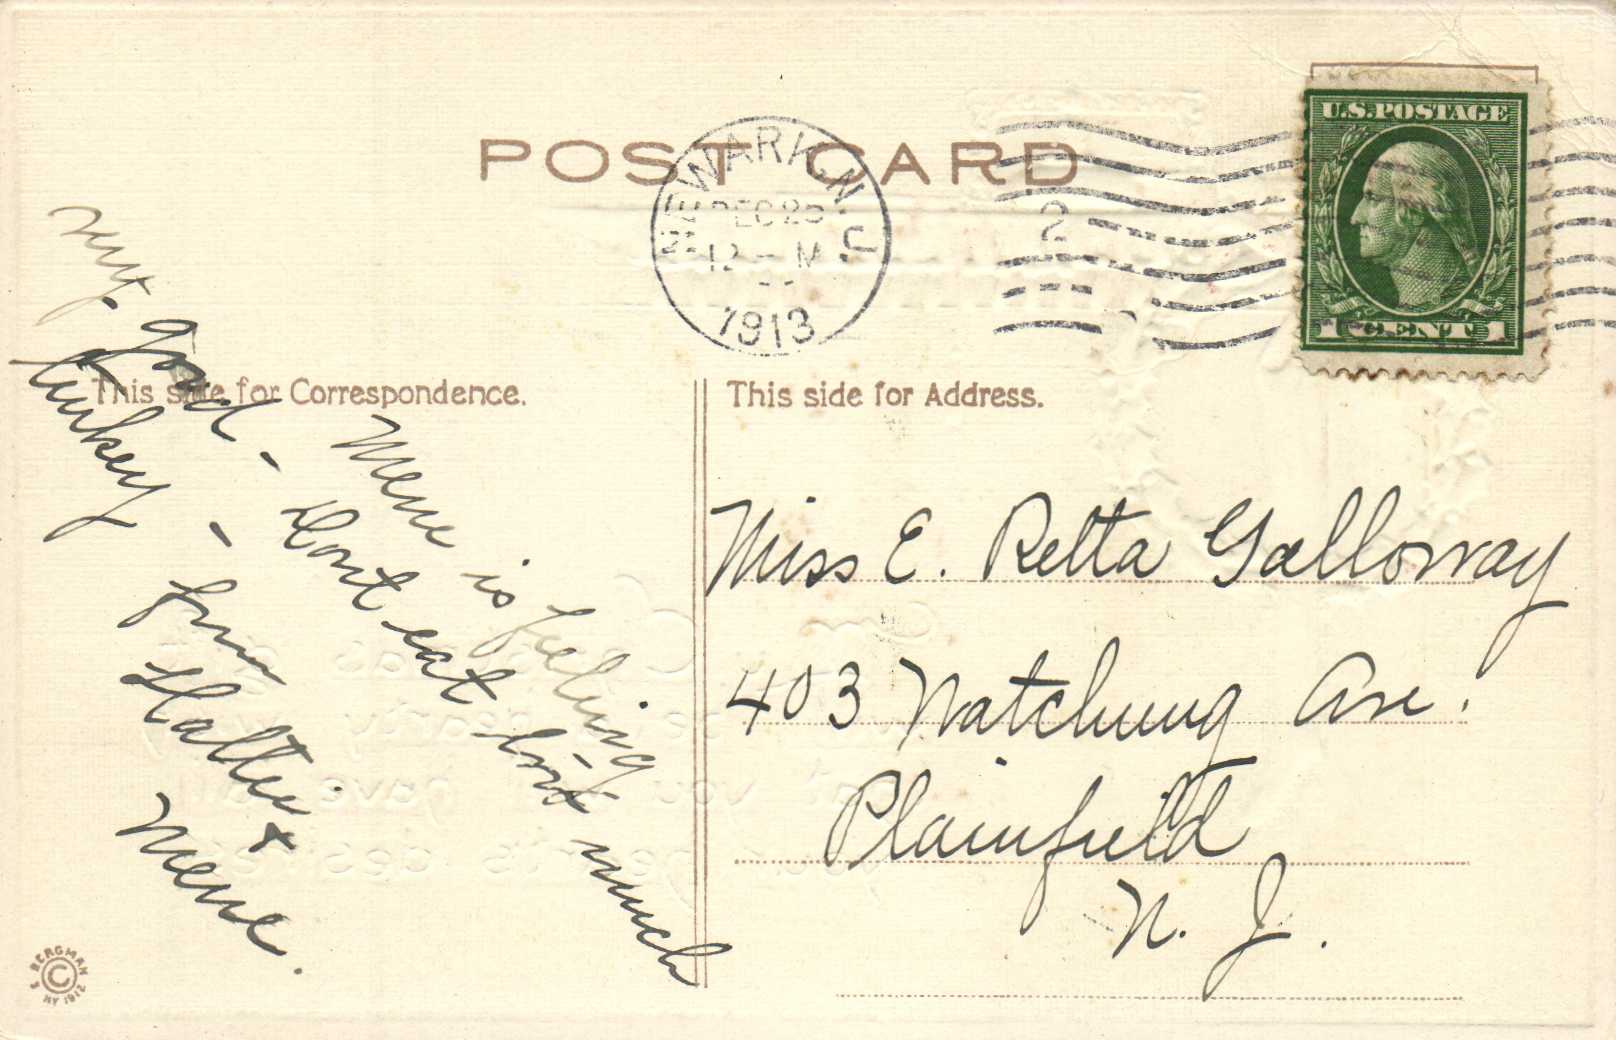 POST CARD
NEWARK, N.J.
DEC 23
12 - M
1913
2
U.S. POSTAGE
1 CENT 1
This side for Correspondence.
This side for Address.
Mene is feeling
very good - Dont eat too much
turkey - from
Hattie &
Mene.
Miss E. Retta Galloway
403 Watchung Ave.
Plainfield
N. J.
S BERGMAN
©
NY 1912